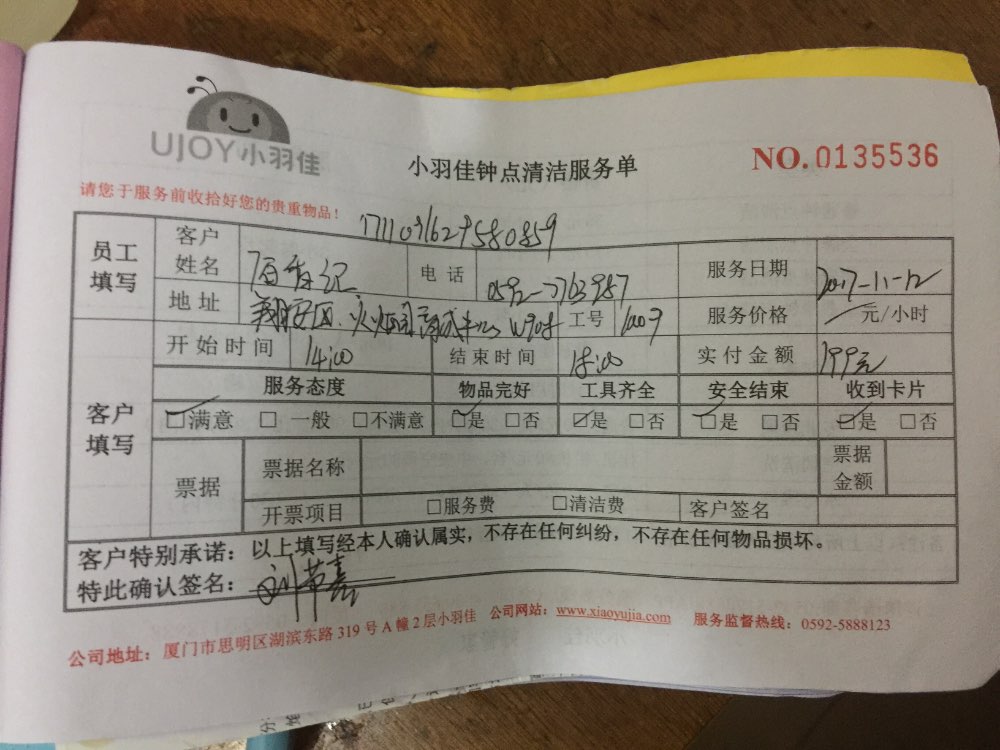 UJOY小羽佳
小羽佳钟点清洁服务单
NO.0135536
请您于服务前收拾好您的贵重物品！
员工填写
客户姓名
电话
服务日期 2017-11-12
地址
工号
服务价格 元/小时
客户填写
开始时间 14:00
结束时间 18:00
实付金额 199元
服务态度 物品完好 工具齐全 安全结束 收到卡片
☑满意 □ 一般 □不满意 ☑是 □否 ☑是 □否 ☑是 □否 ☑是 □否
票据
票据名称
票据金额
开票项目 □服务费 □清洁费 客户签名
客户特别承诺：以上填写经本人确认属实，不存在任何纠纷，不存在任何物品损坏。
特此确认签名：
公司地址：厦门市思明区湖滨东路 319 号 A 幢 2 层小羽佳 公司网站：www.xiaoyujia.com 服务监督热线：0592-5888123